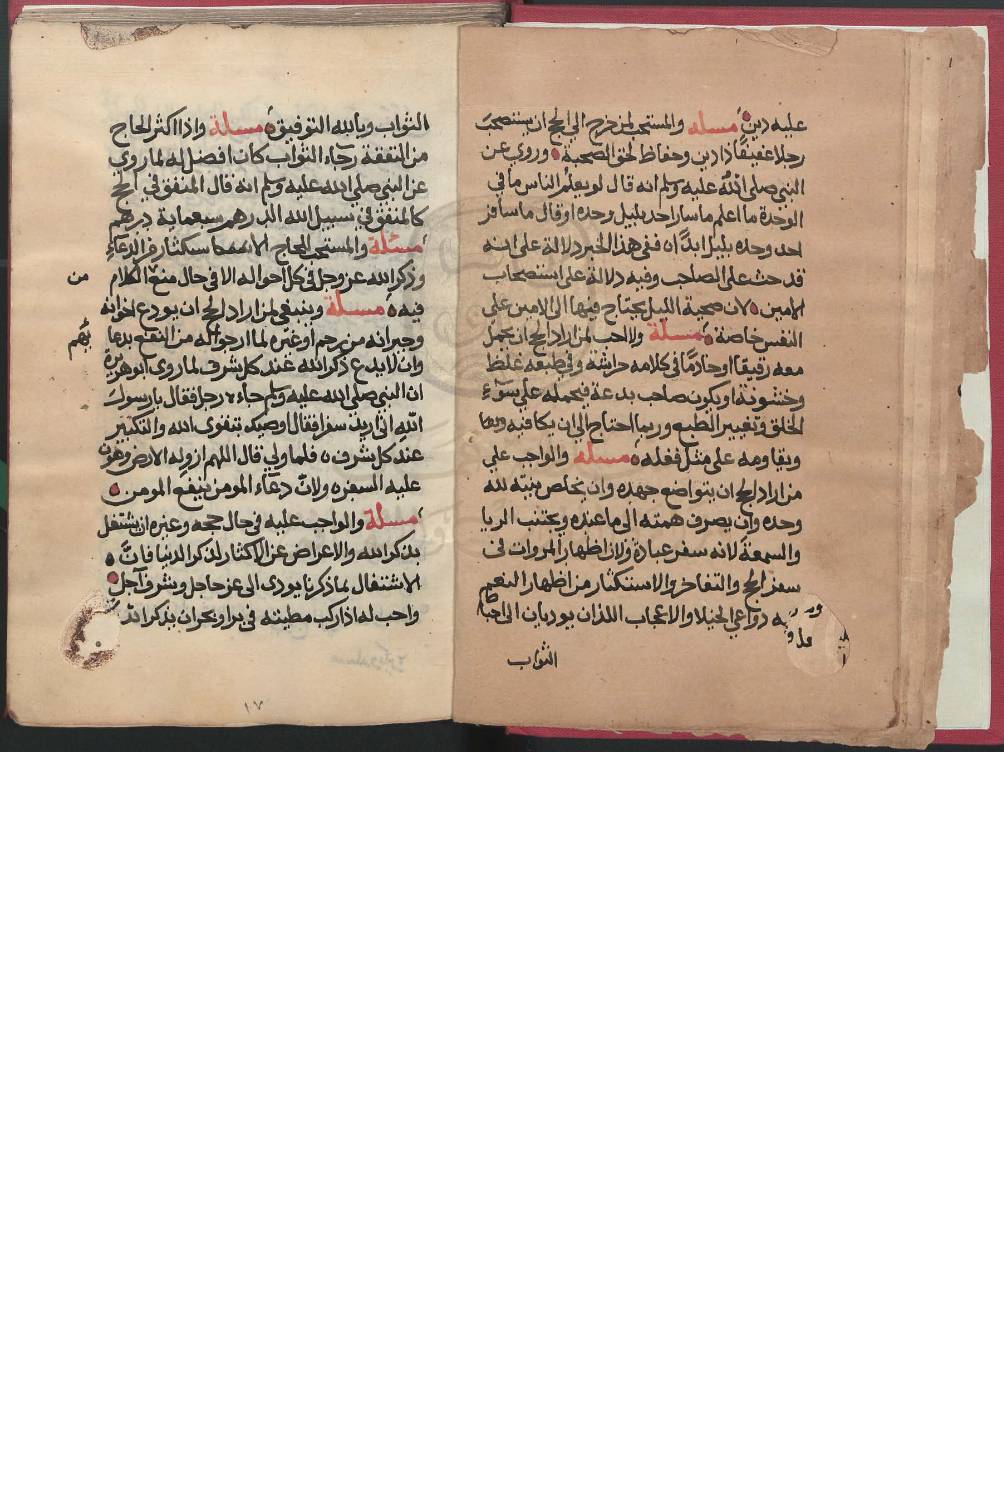 عليه دين ه مسله والمستحب لمن خرج الى الحج ان يستصحب
رجلا عفيفًا ذا دين وحفاظ لحق الصحبة ه وروي عن
النبي صلى الله عليه وسلم انه قال لو يعلم الناس ما في
الوحدة ما اعلم ما سار احد بليل وحده او قال ما سافر
احد وحده بليل ابدًا ن ففي هذا الخبر دلالة على انه
قد حث على الصاحب وفيه دلالة على استصحاب
الامين ه لان صحبة الليل يحتاج فيها الى الامين على
النفس خاصة ه مسلة ولا احب لمن اراد الحج ان يحمل
معه رقيقًا او خادمًا في كلامه حراشة وفي طبعه غلظ
وخشونة او يكون صاحب بدعة فيحمله على سوء
الخلق وتغيير الطبع وربما احتاج الى ان يكافيه وبما
ويقاومه على مثل فعله ه مسله والواجب علي
من اراد الحج ان يتواضع جهده وان يخلص بنيته لله
وحده وان يصرف همته الى ما عنده ويجتنب الريا
والسمعة لانه سفر عبادة ولان اظهار المروات في
سفر الحج والتفاخر والاستكثار من اظهار النعم
دواعي الخيلا والاعجاب اللذان يوديان الى احباط
الثواب
الثواب وبالله التوفيق ه مسلة واذا اكثر الحاج
من النفقة رجاء الثواب كان افضل له لما روي
عن النبي صلى الله عليه وسلم انه قال المنفق في الحج
كالمنفق في سبيل الله الدرهم سبعماية درهم
مسئلة والمستحب للحاج الاستكثار من الدعاء
وذكر الله عز وجل في كل احواله الا في حال منع الكلام من
فيه ه مسلة وينبغي لمن اراد الحج ان يودع اخوانه
وجيرانه من رحم او غيره لما ارجو اله من النفع بدعا بهم
وان لا يدع ذكر الله عند كل شرف لما روى ابو هريرة
ان النبي صلى الله عليه وسلم جاءه رجل فقال يا رسول
الله اني اريد سفرا فقال اوصيك بتقوى الله والتكبير
عند كل شرف ه فلما ولي قال اللهم ازو له الارض وهون
عليه السفر ه ولان دعاء المومن ينفع المومن ه
مسلة والواجب عليه في حال حجه وغيره ان يشتغل
بذكر الله والاعراض عن الاكثار لذكر الدنيا فان ه
الاشتغال بما ذكرنا يودي الى عز عاجل وشرف آجل ه
واحب له اذا ركب مطيته في بر او بحر ان يذكر الله
١٧